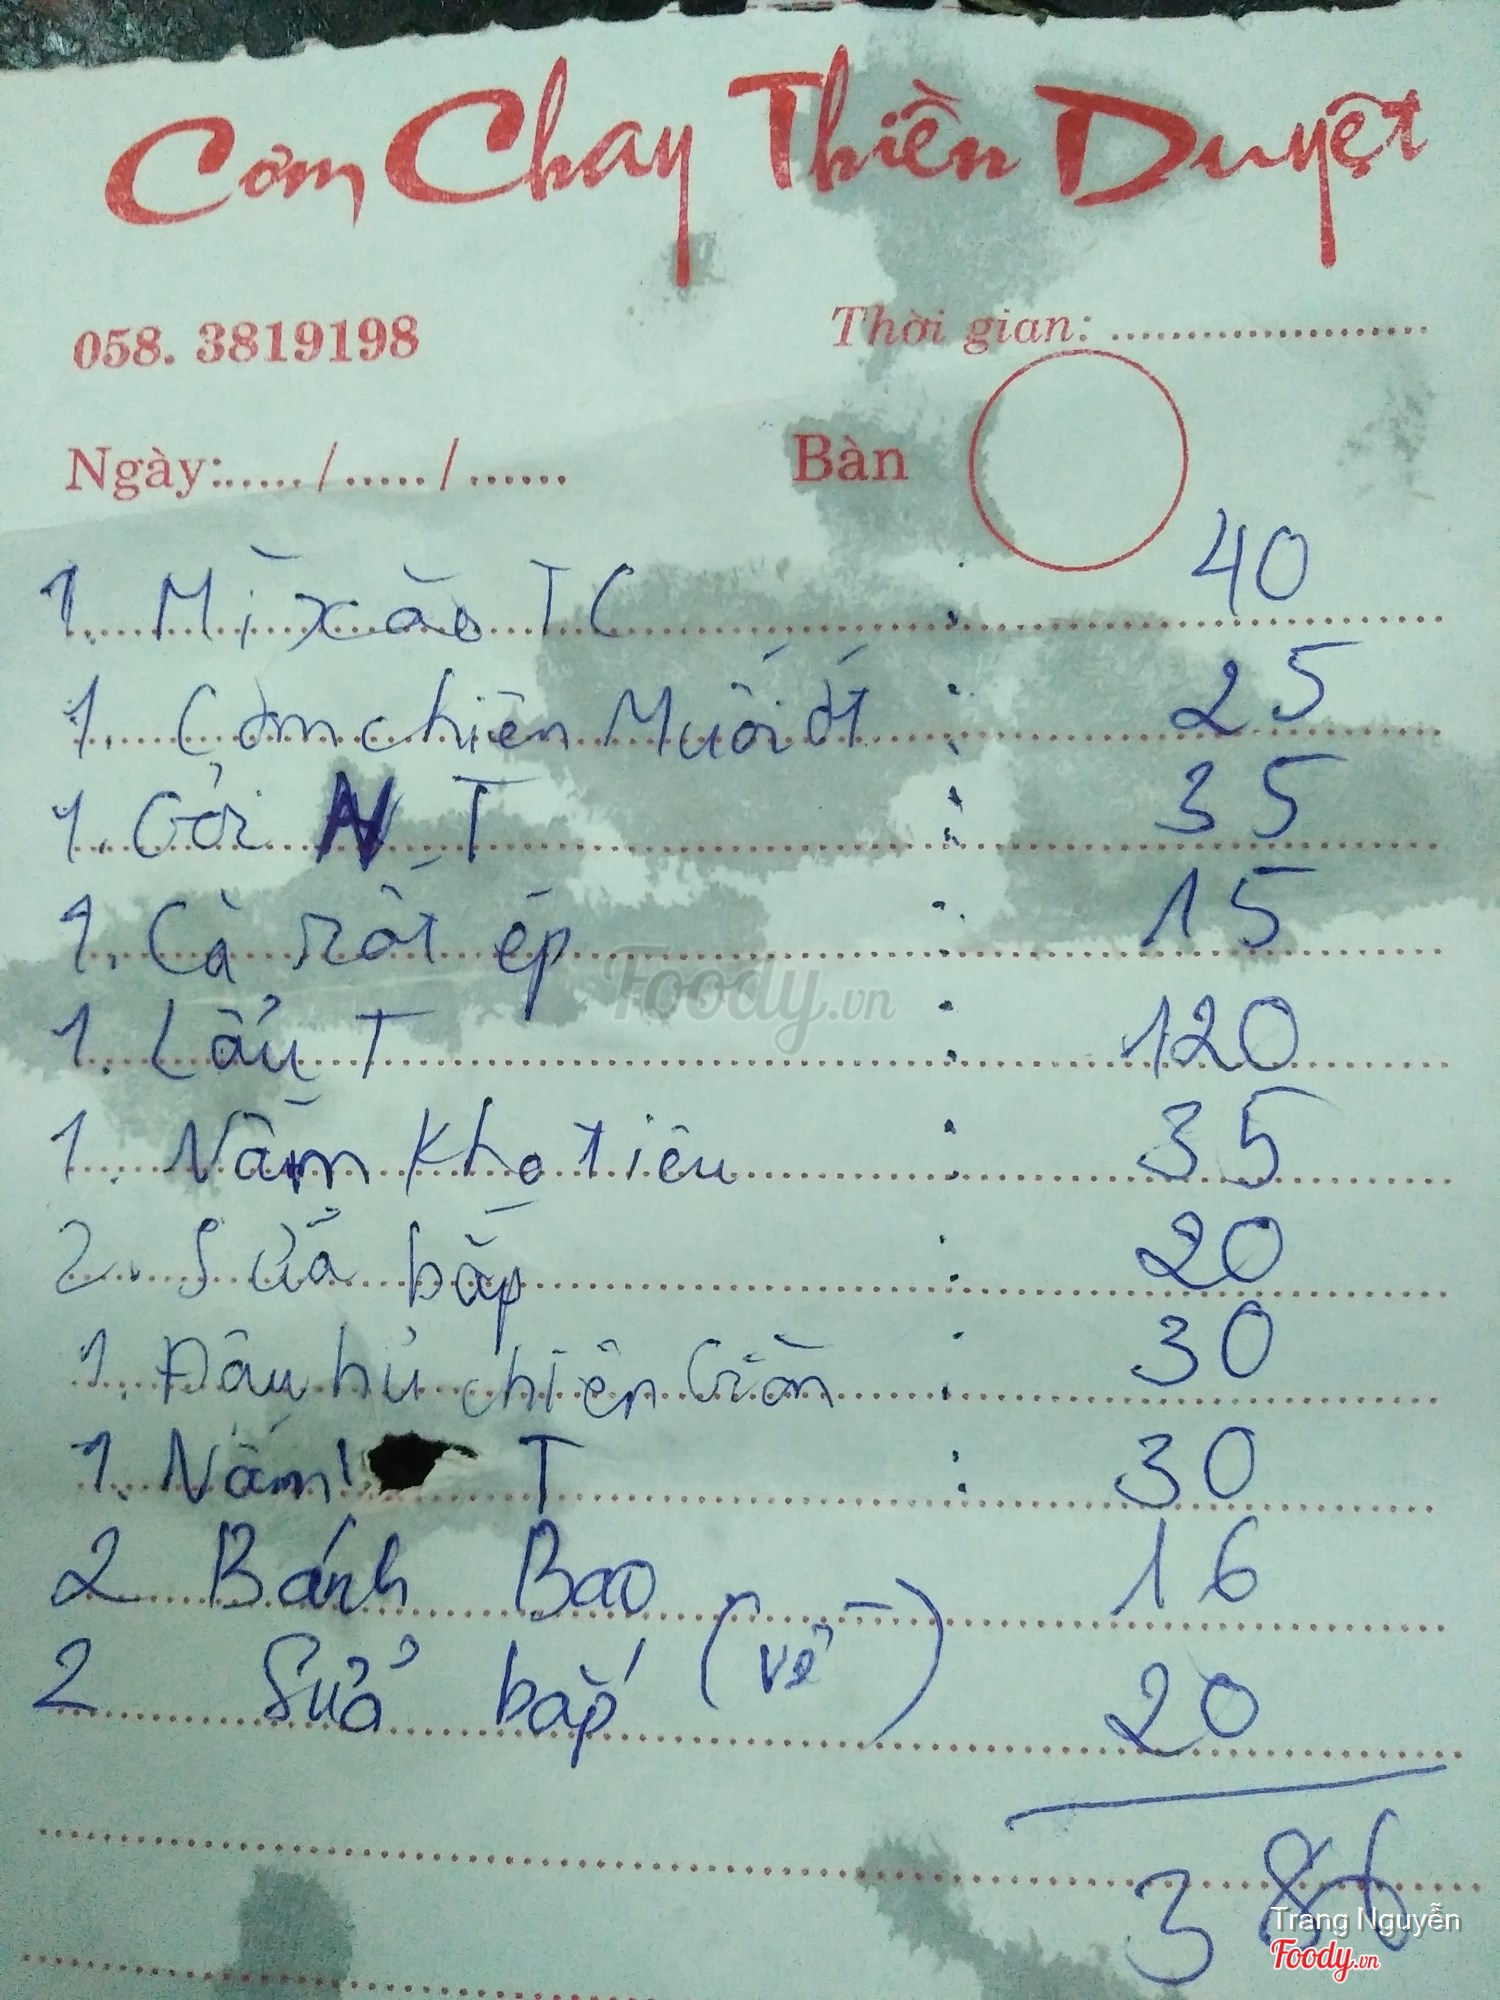 Cơm Chay Thiền Duyệt
058. 3819198
Thời gian: ........................
Ngày:....../....../.......
Bàn
1. Mì xào TC : 40
1. Cơm chiên Muối ớt : 25
1. Gỏi N T : 35
1. Cà rốt ép : 15
1. Lẩu T : 120
1. Nấm kho tiêu : 35
2. Sữa bắp : 20
1. Đậu hủ chiên giòn : 30
1. Nấm T : 30
2 Bánh Bao 16
2 Sửa bắp (về) 20
386
Foody.vn
Trang Nguyễn
Foody.vn